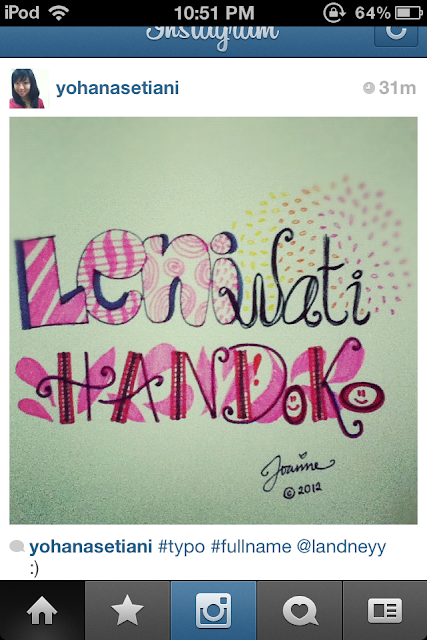 iPod 10:51 PM 64%
Instagram
yohanasetiani 31m
Leniwati
HANDOKO
Joanne
© 2012
yohanasetiani #typo #fullname @landneyy
:)